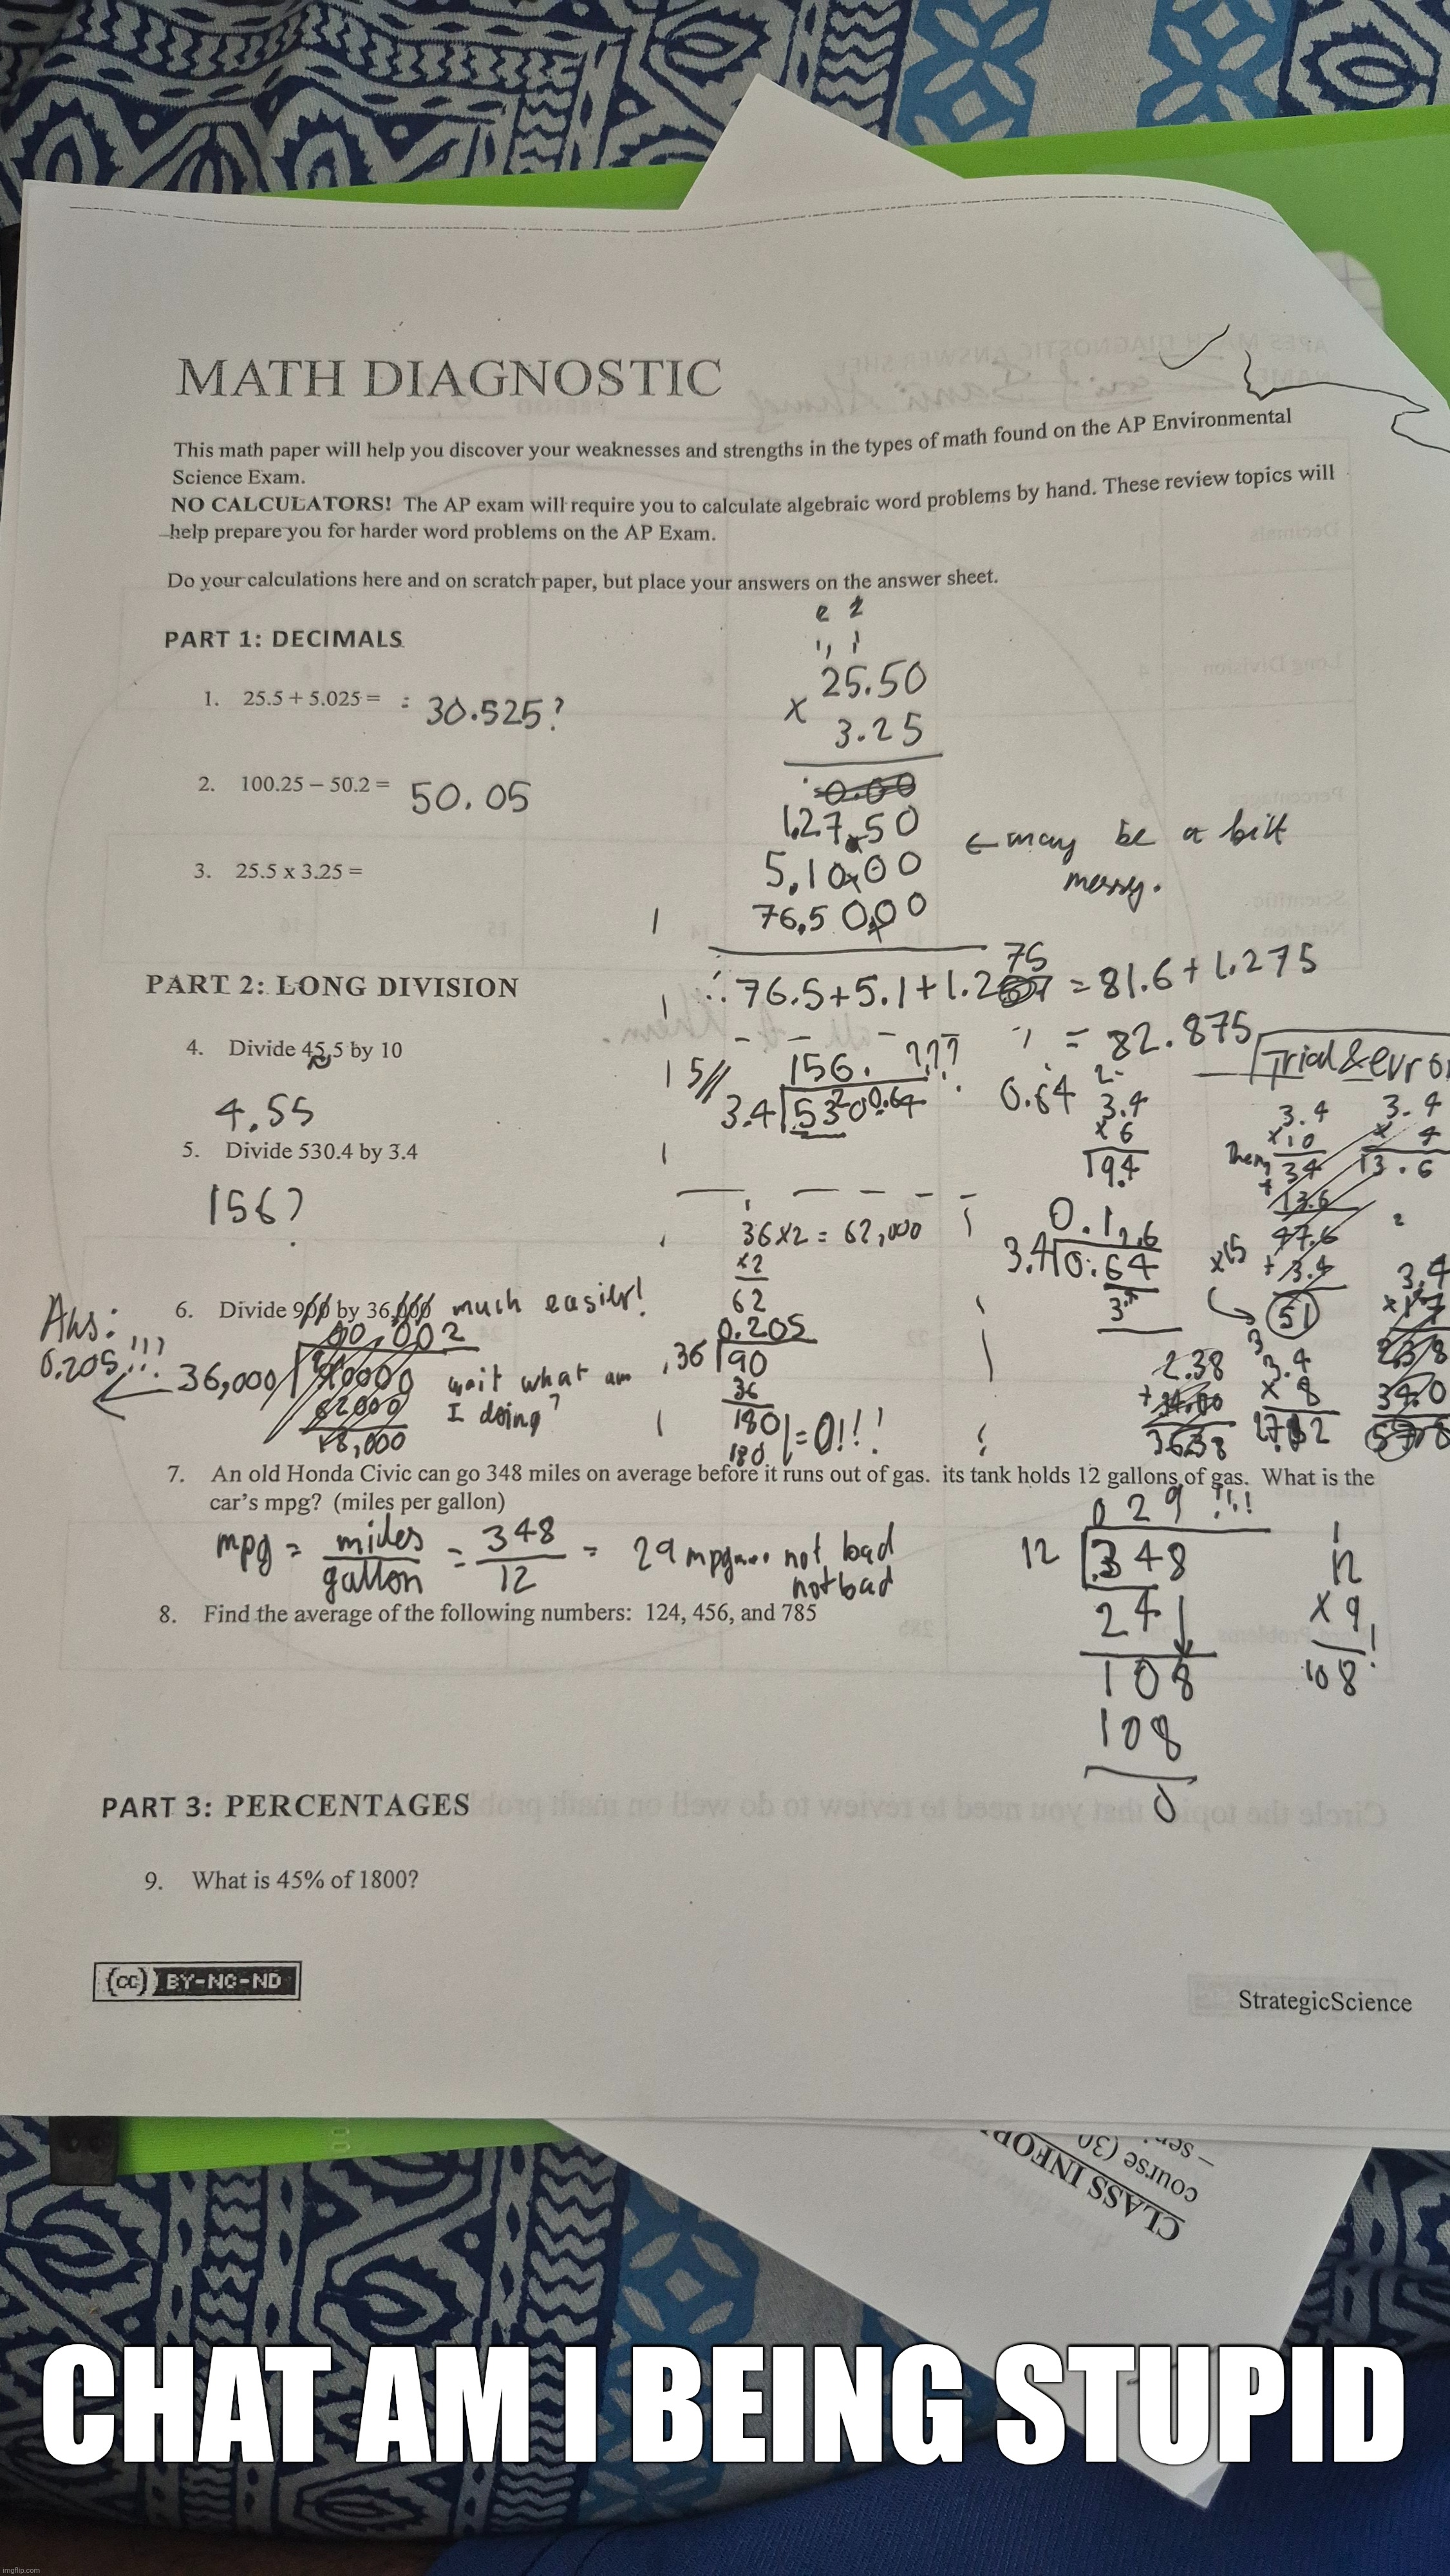 MATH DIAGNOSTIC
This math paper will help you discover your weaknesses and strengths in the types of math found on the AP Environmental
Science Exam.
NO CALCULATORS! The AP exam will require you to calculate algebraic word problems by hand. These review topics will
help prepare you for harder word problems on the AP Exam.
Do your calculations here and on scratch paper, but place your answers on the answer sheet.
PART 1: DECIMALS
1. 25.5 + 5.025 = = 30.525?
2. 100.25 – 50.2 = 50.05
3. 25.5 x 3.25 =
25.50
x 3.25
127.50
5,10.00
76,50.00
← may be a bit
messy.
∴ 76.5+5.1+1.275 = 81.6+1.275
= 82.875
PART 2: LONG DIVISION
4. Divide 45.5 by 10
4.55
5. Divide 530.4 by 3.4
156?
156. ???
Trial & error
0.64
3.4
x 6
19.4
3.4
x10
34
3.4
x 4
13.6
Then
13.6
47.6
+3.4
x15
51
0.1
3.4 0.64
36x2 = 62,000
x2
62
6. Divide 900 by 36,000 much easier!
Ans:
0.205!!!
00.002
36,000 90000
62000
18,000
wait what am
I doing?
0.205
36 90
36
180
180
=0!!!
2.38
3.4
x 8
7. An old Honda Civic can go 348 miles on average before it runs out of gas. its tank holds 12 gallons of gas. What is the
car's mpg? (miles per gallon)
mpg = miles/gallon = 348/12 = 29 mpg... not bad
not bad
029 !!!
12 348
24
108
108
0
12
x9
108!
8. Find the average of the following numbers: 124, 456, and 785
PART 3: PERCENTAGES
9. What is 45% of 1800?
(cc) BY-NC-ND
StrategicScience
CLASS INFOR
course (30
CHAT AM I BEING STUPID
imgflip.com